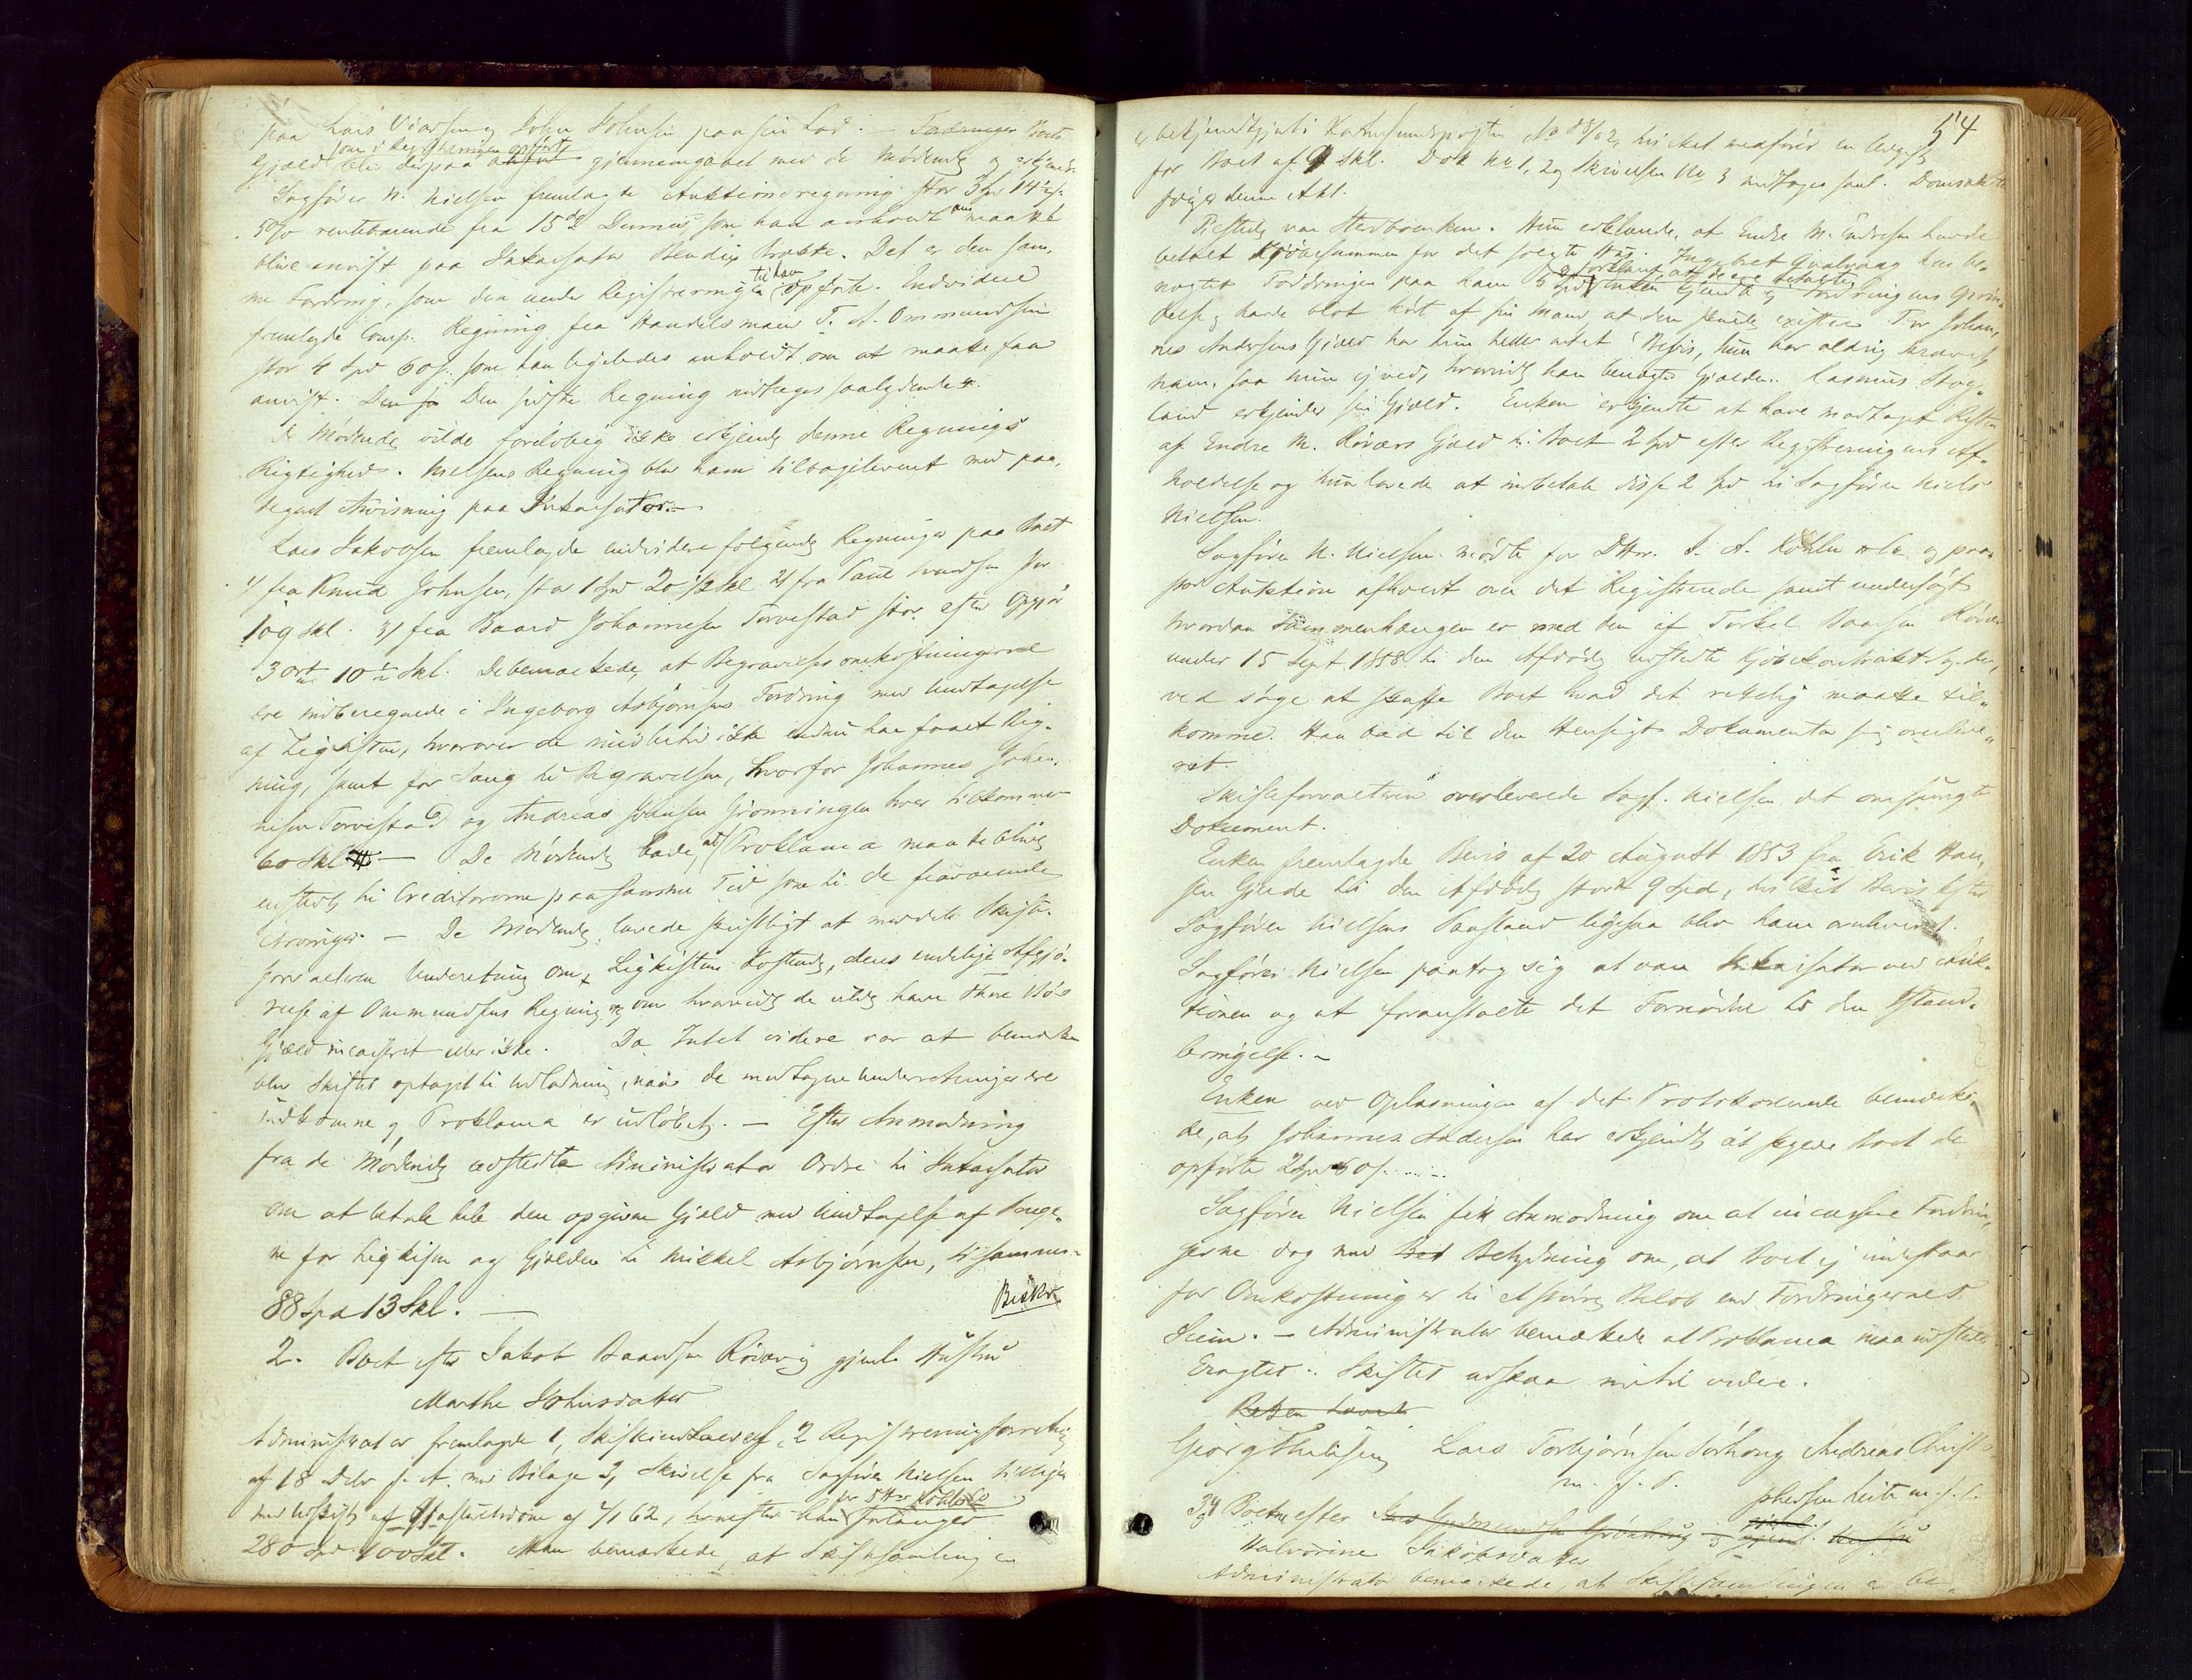 paa Lars Vi[...] og John Johnsen paa sin Lod. — Boets
som i Registreringen opført
Gjæld blev derpaa anført gjennemgaaet med de Mødende og erkjendt.
Sagfører N. Nielsen fremlagde Auktionsregning stor 3 Spd 14½ s.
5 0/0 rentebærende fra 15de Dennes, som han anholdt om maatte
blive anvist paa Inkassator Bendix Brekke. Det er den sam-
me Fordring, som den under Registreringen til ham opførte. Endvidere
fremlagde Comp. Regning fra Handelsmand T. A. Ommundsen
stor 4 Spd 60 s. som han ligeledes anholdt om at maatte faa
anvist. Den sidste Regning modtoges saalydende.
De Mødende vilde foreløbig ikke erkjende denne Regnings
Rigtighed. Nielsens Regning blev ham tilbageleveret med paa-
tegnet Anvisning paa Inkassator. —
Lars Jakobsen fremlagde endvidere følgende Regninger paa Boet
1/ fra Knud Johnsen, stor 1 Spd 20½ Skl 2/ fra Paul Knudsen stor
109 Skl. 3/ fra Baard Johannesen Torvestad stor efter Opgjør
3 ort 10½ Skl. De bemærkede, at Begravelsesomkostningerne
ere indberegnede i Ingeborg Asbjørnsens Fordring med Undtagelse
af Ligkisten, hvorover de imidlertid ikke endnu har faaet Reg-
ning, samt for Sang til Begravelsen, hvorfor Johannes Johan-
nesen Torvestad og Andreas Johnsen Grønningen hver tilkommer
60 Skl — De Mødende bade, at Proklama maatte blive
udstedt til Creditorerne paa samme Tid som til de fraværende
Arvinger. — De Mødende lovede skriftligt at meddele Skifte-
forvalteren Underretning om Ligkistens Kostende, deres endelige Afgjø-
relse af Ommundsens Regning og om hvorvidt de vilde have Thore Bø's
Gjæld incasseret eller ikke. Da Intet videre var at bemærke
blev Skiftet optaget til Udlodning, naar de modtagne Underretninger ere
indkomne og Proklama er udløbet. — Efter Anmodning
fra de Mødende udstedte Administrator Ordre til Inkassator
om at betale hele den opgivne Gjæld med Undtagelse af Penge-
ne for Ligkisten og Gjælden til Mikkel Asbjørnsen, tilsammen
88 Spd 13 Skl. —
Beskr
2. Boet efter Jakob Baardsen Røvær og gjenl. Hustru
Marthe Johnsdatter
Administrator fremlagde 1, Skifteindkaldelse, 2 Registreringsforretning
af 18 Debr f. A. med Bilage 3, Skrivelse fra Sagfører Nielsen tilligemed
for DHrr Køhler & Co
med Udskrift af Gjæsteretsdom af 7/1 62, hvorefter han forlanger
280 Spd 100 Skl. Man bemærkede, at Skiftesamling er
54
bekjendtgjort i Karmsundsposten No 3/62, hvilket medfører en Udgift
for Boet af 9 Skl. Dok No 1, 2 og Skrivelsen No 3 modtoges saal. Domsakten
følger denne Akt.
Tilstede var Sterbenken. Hun erklærede, at Endre M. Endresen havde
betalt Kjøbesummen for det solgte Hus. Ingebret Qvalvaag har be-
og forklaret, at de ere betalte
nægtet Fordringen paa ham 5 Spd Enken kjendte ej Fordringens Oprin-
delse, havde blot hørt af sin Mand at den skulde existere. For Johan-
nes Andersens Gjæld har hun heller intet Bevis, hun har aldrig krævet
ham, saa hun ej ved, hvorvidt han benægter Gjælden. Rasmus Stog-
land erkjender sin Gjæld. Enken erkjendte at have modtaget Resten
af Endre M. Røværs Gjæld til Boet 2 Spd efter Registreringens Af-
holdelse og hun lovede at indbetale disse 2 Spd til Sagfører Niels
Nielsen.
Sagfører N. Nielsen mødte for DHrr. J. A. Køhler & Co og paa-
stod Auktion afholdt over det Registrerede samt undersøgt
hvordan Sammenhængen er med den af Torkel Baardsen Røvær
under 15 Sept. 1858 til den Afdøde udstedte Kjøbekontrakt og der-
ved søge at skaffe Boet hvad det rettelig maatte til-
komme. Han bad til den Hensigt Dokumentet sig overleve-
ret.
Skifteforvalteren overleverede Sagf. Nielsen det omspurgte
Dokument.
Enken fremlagde Bevis af 20 August 1853 fra Erik Han-
sen Gjerde til den Afdøde stort 9 Spd, hvilket Bevis efter
Sagfører Nielsens Paastand ligesaa blev ham overleveret.
Sagfører Nielsen paatog sig at være Inkassator ved Auk-
tionen og at foranstalte det Fornødne til dens Istand-
bringelse. —
Enken ved Oplæsningen af det Protokollerede bemærke-
de, at Johannes Andersen har erkjendt at skylde Boet de
opførte 2 Spd 60 s.
Sagfører Nielsen fik Anmodning om at incassere Fordrin-
gerne dog med Betydning om, at Boet ej indestaar
for Omkostninger til større Beløb end Fordringernes
Sum. — Administrator bemærkede at Proklama maa udstedes.
Eragtet: Skiftet udstaar indtil videre.
Retten hævet
Georg Thulesen Lars Torbjørnsen Sørhoug Andreas Christo-
m. f. P. phersen Leite m. f. P.
3/ Boet efter Jens Gudmundsen Grønhaug og gjenl. Hustru
Halvorine Jakobsdatter
Administrator bemærkede, at Skiftesamlingen er be-